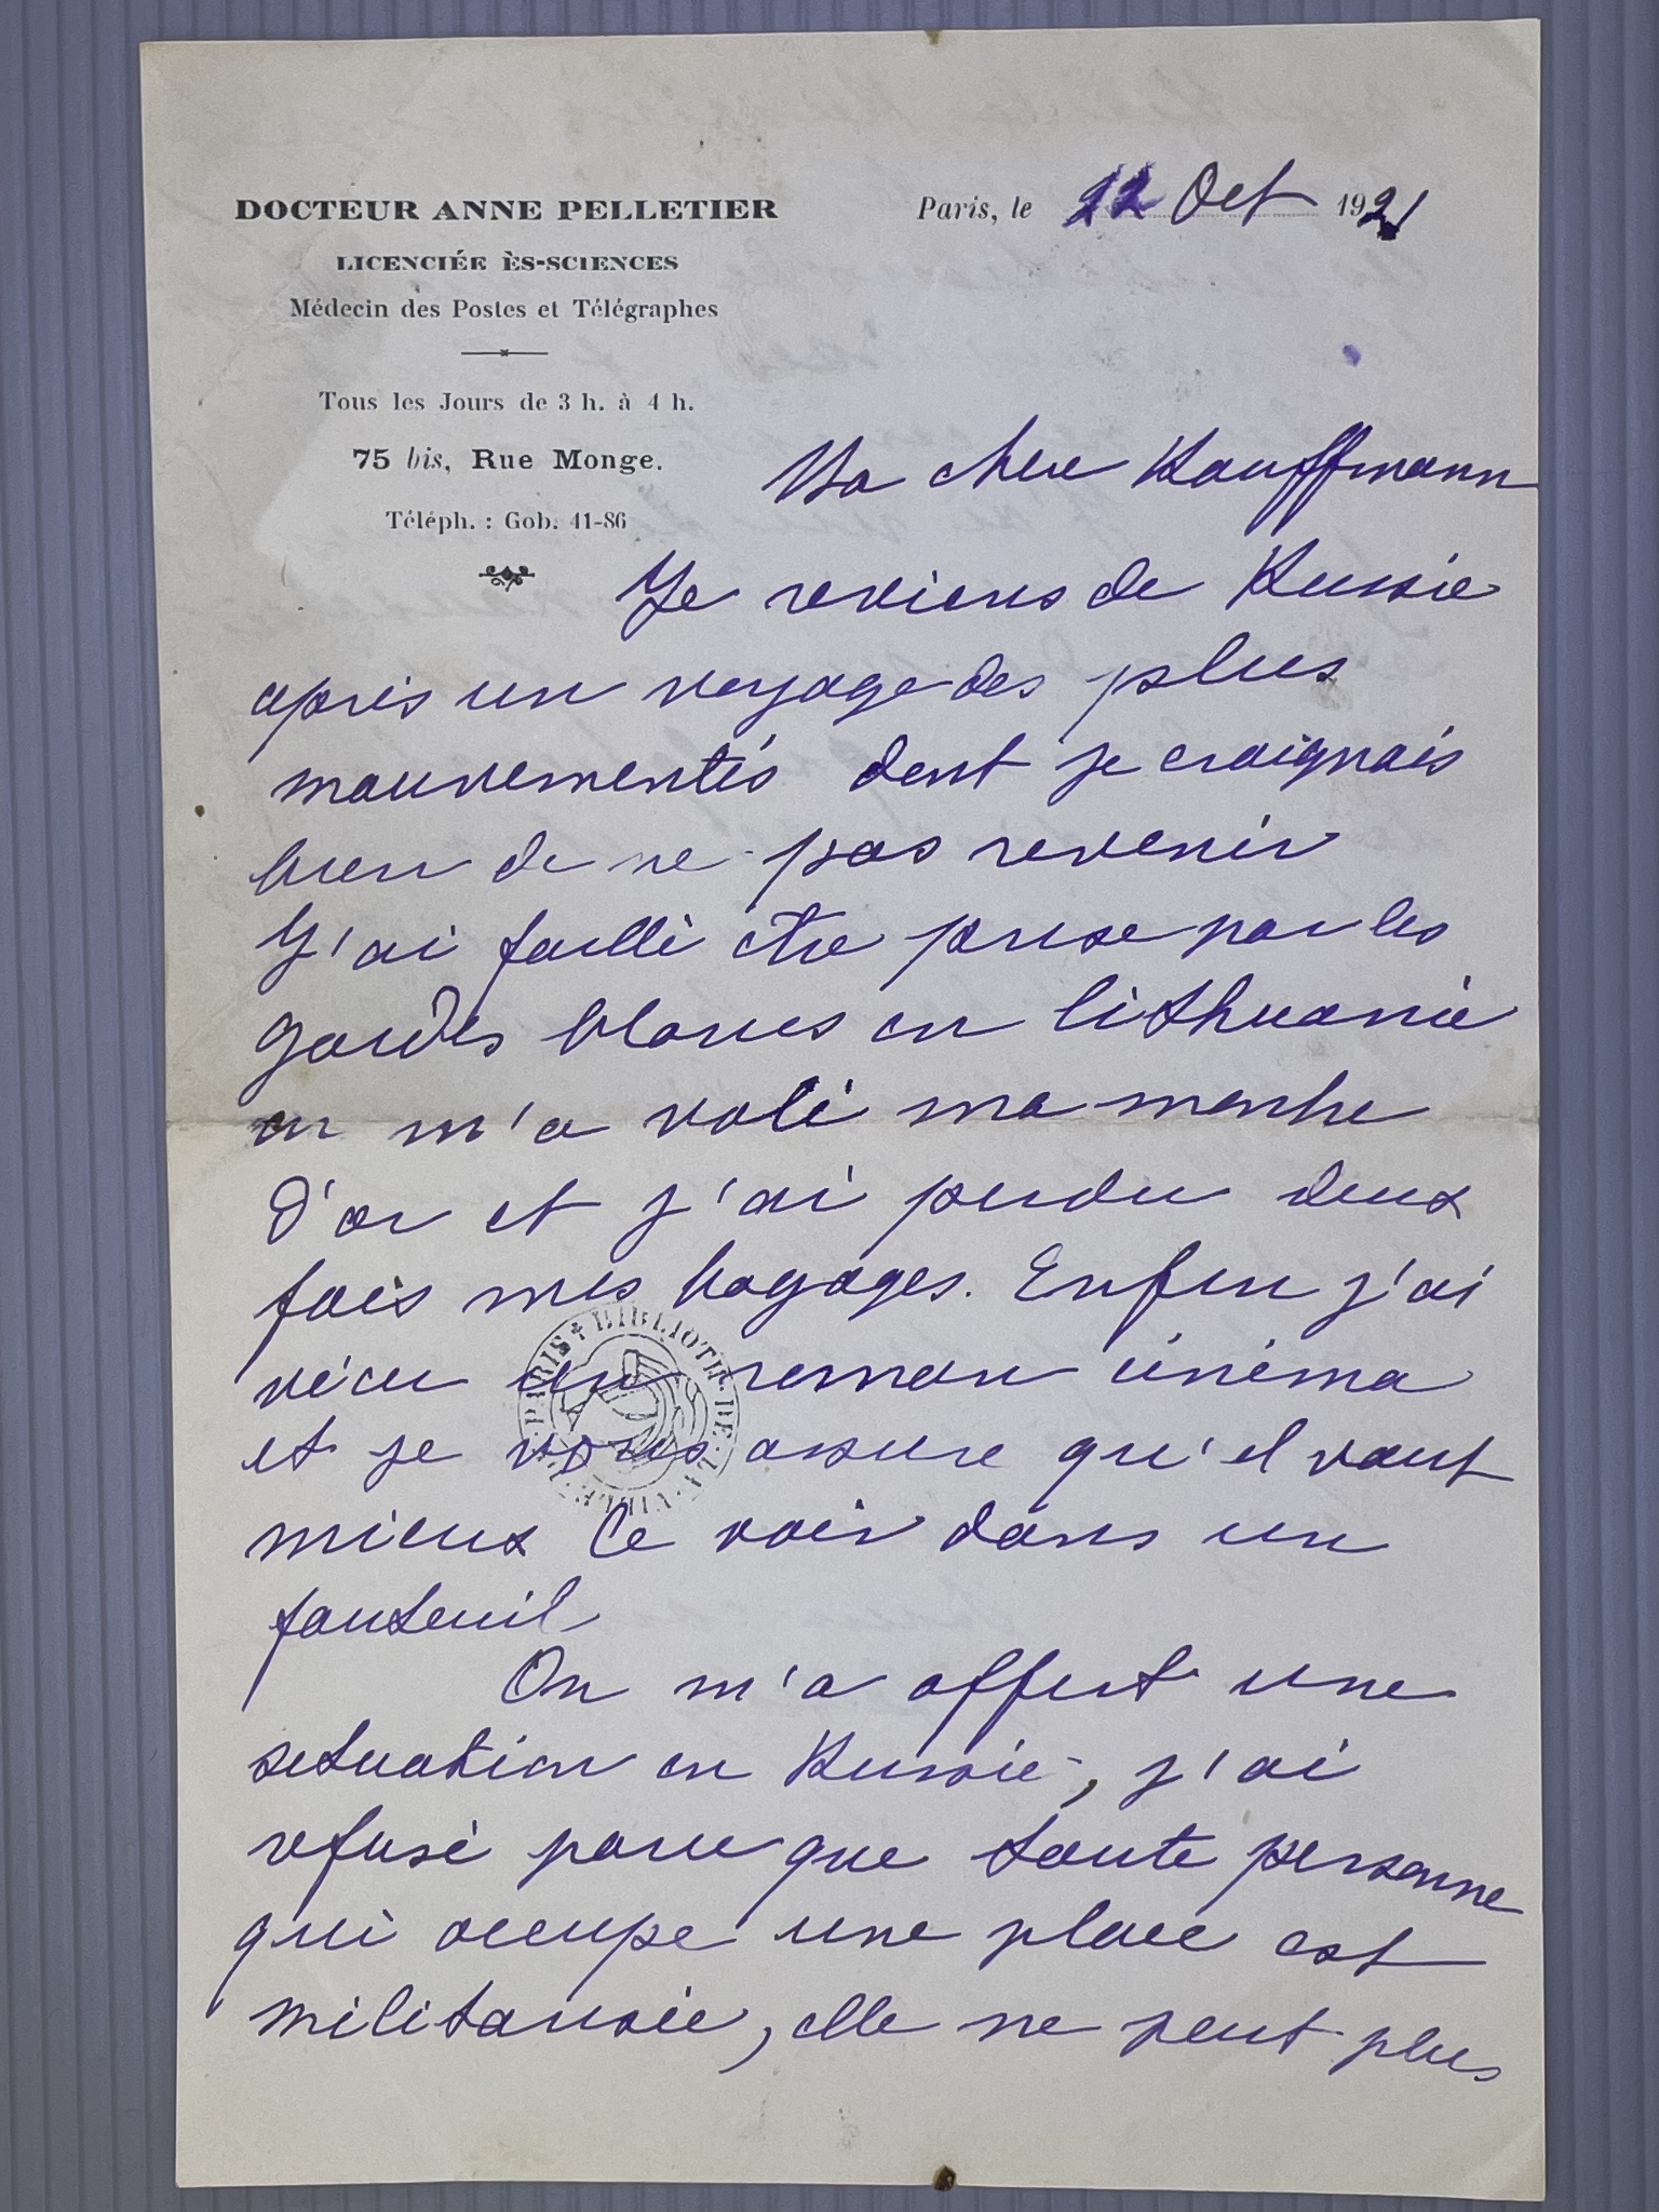 DOCTEUR ANNE PELLETIER
LICENCIÉE ÈS-SCIENCES
Médecin des Postes et Télégraphes
Tous les Jours de 3 h. à 4 h.
75 bis, Rue Monge.
Téléph. : Gob. 41-86
Paris, le 22 Oct 1921
Ma chere Kauffmann
Je reviens de Russie
après un voyage des plus
mouvementés dont je craignais
bien de ne pas revenir
J'ai failli être prise par les
gardes blancs en lithuanie
on m'a volé ma montre
d'or et j'ai perdu deux
fois mes bagages. Enfin j'ai
vécu un roman cinéma
et je vous assure qu'il vaut
mieux le voir dans un
fauteuil
On m'a offert une
situation en Russie, j'ai
refusé parce que toute personne
qui occupe une place est
militarisée, elle ne peut plus
PARIS + BIBLIOTH. DE LA VILLE